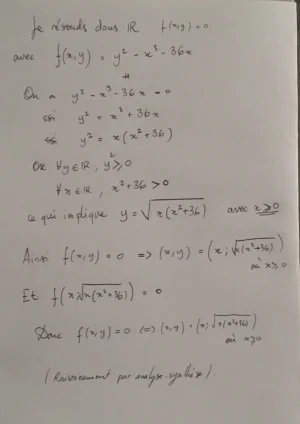 Je résouds dans IR f(x,y) = 0
avec f(x,y) = y² - x³ - 36x
On a y² - x³ - 36x = 0
ssi y² = x³ + 36x
ssi y² = x(x² + 36)
Or ∀y ∈ IR, y² ≥ 0
∀x ∈ IR, x² + 36 > 0
ce qui implique y = √x(x²+36) avec x ≥ 0
Ainsi f(x,y) = 0 => (x,y) = (x ; √x(x²+36))
où x ≥ 0
Et f(x, √x(x²+36)) = 0
Donc f(x,y) = 0 (=> (x,y) = (x ; √x(x²+36))
où x ≥ 0
(Raisonnement par analyse-synthèse).